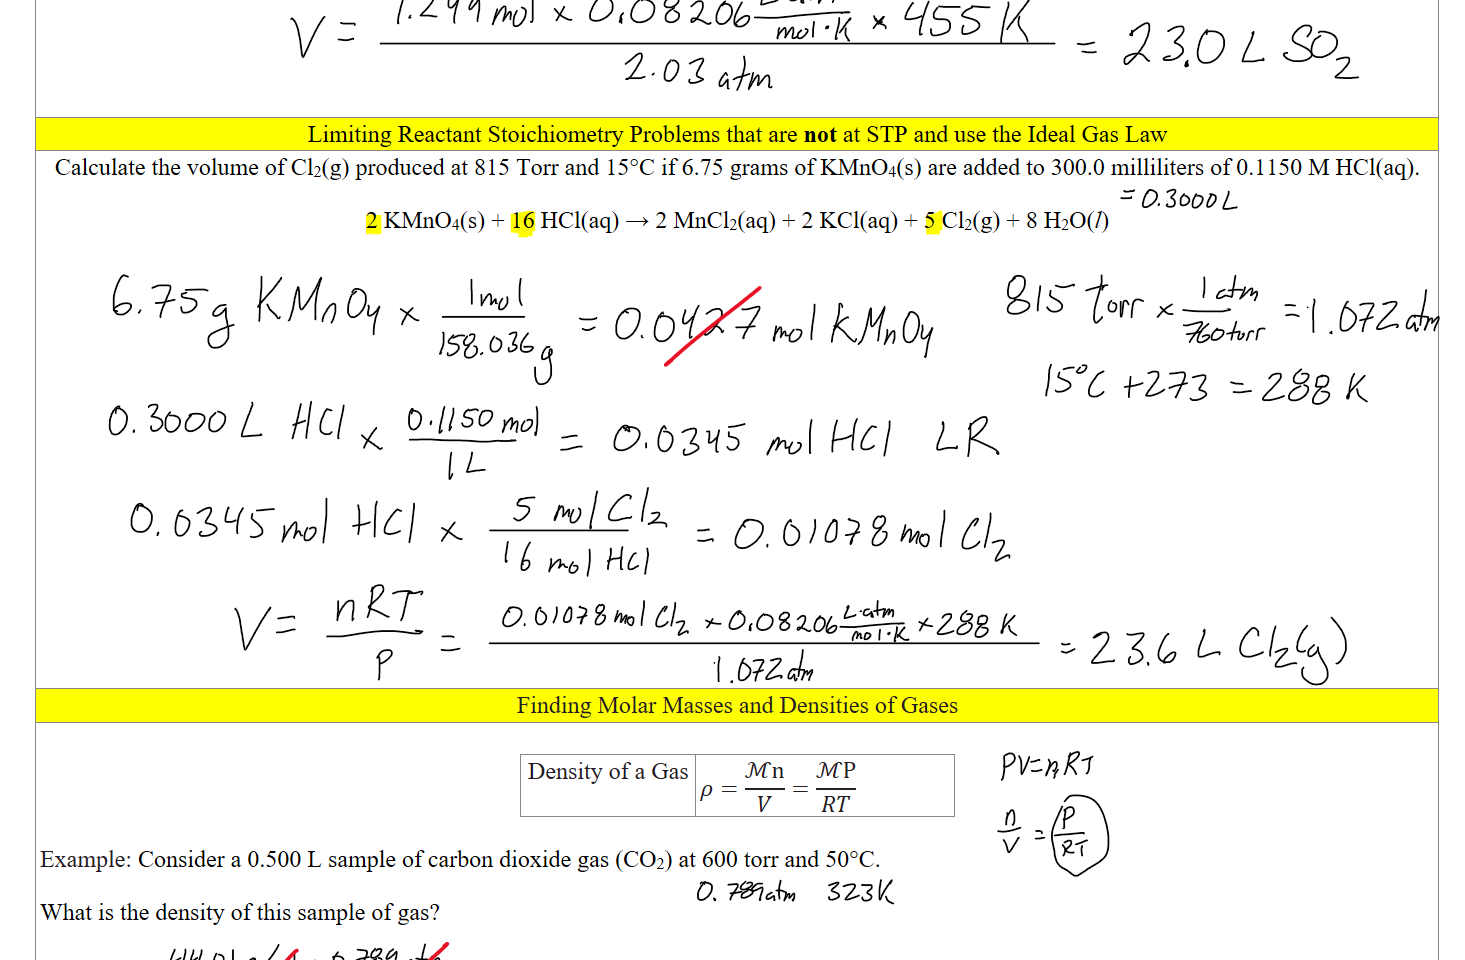 V = 1.299 mol x 0.08206 L·atm/mol·K x 455 K / 2.03 atm = 23.0 L SO₂
Limiting Reactant Stoichiometry Problems that are not at STP and use the Ideal Gas Law
Calculate the volume of Cl₂(g) produced at 815 Torr and 15°C if 6.75 grams of KMnO₄(s) are added to 300.0 milliliters of 0.1150 M HCl(aq).
= 0.3000 L
2 KMnO₄(s) + 16 HCl(aq) → 2 MnCl₂(aq) + 2 KCl(aq) + 5 Cl₂(g) + 8 H₂O(l)
6.75 g KMnO₄ x 1 mol / 158.036 g = 0.0427 mol KMnO₄
815 torr x 1 atm / 760 torr = 1.072 atm
15°C + 273 = 288 K
0.3000 L HCl x 0.1150 mol / 1 L = 0.0345 mol HCl LR
0.0345 mol HCl x 5 mol Cl₂ / 16 mol HCl = 0.01078 mol Cl₂
V = nRT / P = 0.01078 mol Cl₂ x 0.08206 L·atm/mol·K x 288 K / 1.072 atm = 23.6 L Cl₂(g)
Finding Molar Masses and Densities of Gases
Density of a Gas ρ = ℳn / V = ℳP / RT
PV = nRT
n/V = P/RT
Example: Consider a 0.500 L sample of carbon dioxide gas (CO₂) at 600 torr and 50°C.
0.789 atm 323 K
What is the density of this sample of gas?